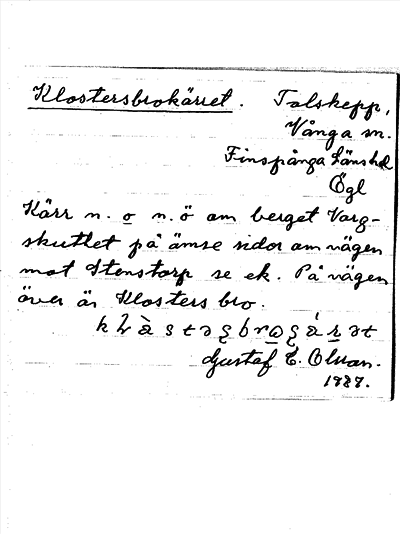 Klostersbrokärret. Tolskepp,
Vånga sn.
Finspånga länshd
Ögl
Kärr n. o n.ö om berget Varg-
skutlet på ömse sidor om vägen
mot Stenstorp se ek. På vägen
över är Klosters bro.
Gustaf E. Olsson.